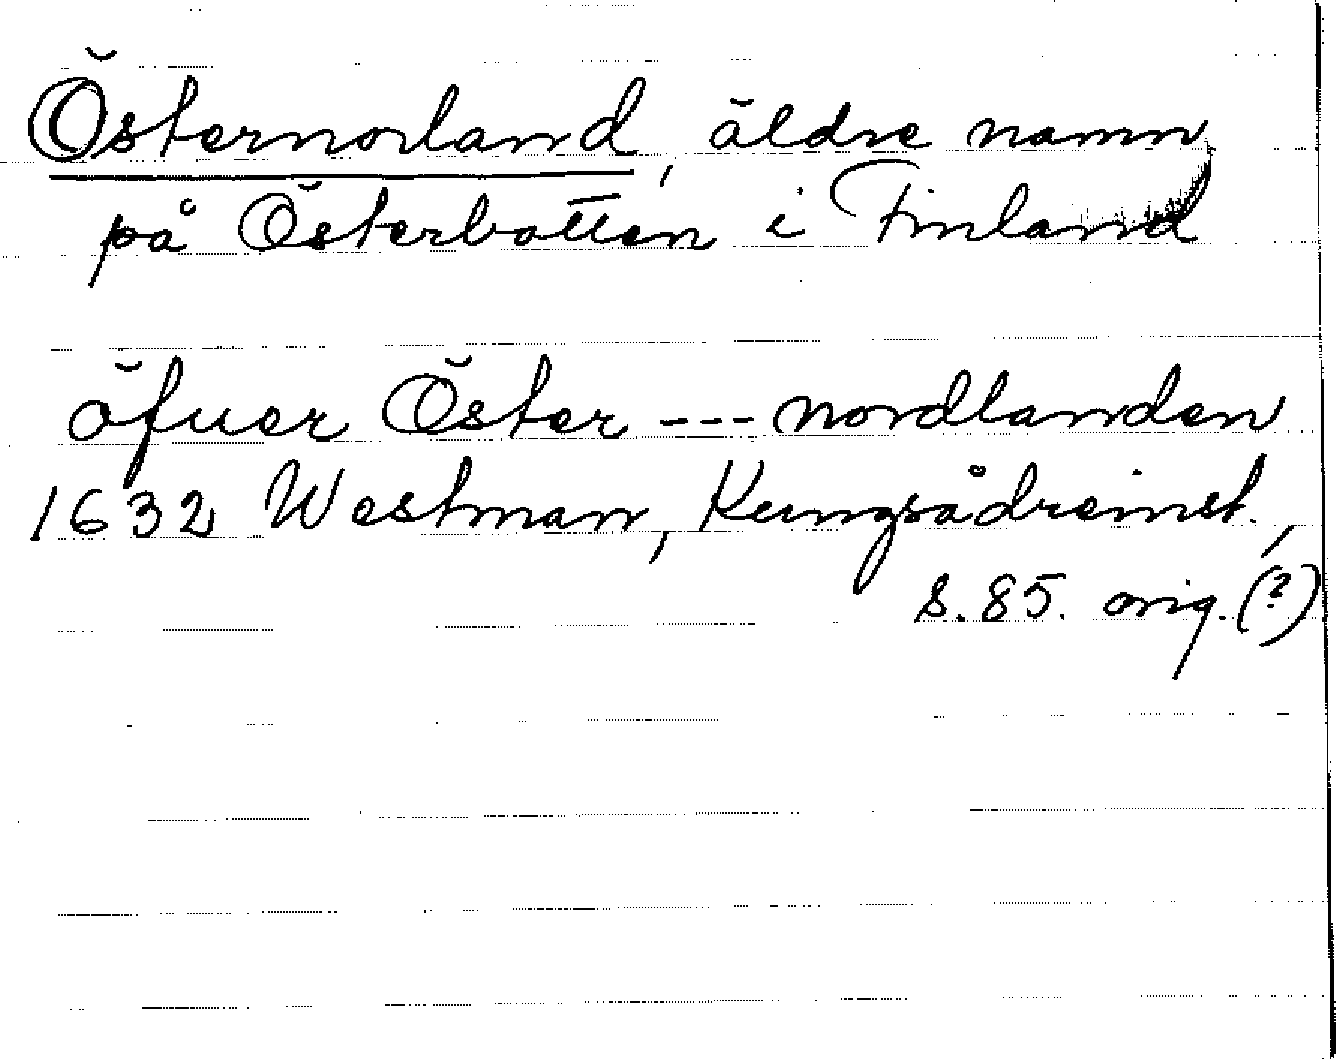 Östernorland, äldre namn
på Österbotten i Finland
öfuer Öster --- nordlanden
1632 Westman, Kungsådreinst.,
s. 85. orig. (?)